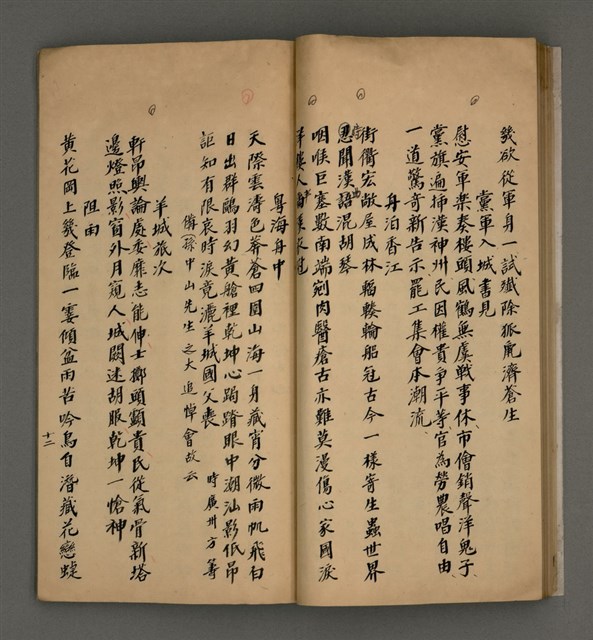 幾欲從軍身一試殲除狐鼠濟蒼生
黨軍入城書見
慰安軍樂奏樓頭風鶴無虞戰事休市儈銷聲洋鬼子
黨旗遍掃漢神州民因權貴爭平等官為勞農唱自由
一道驚奇新告示罷工集會本潮流
舟泊香江
街衢宏敞屋成林輻輳輪船冠古今一樣寄生蟲世界
開漢語混胡琴
咽喉巨塞數南端剜肉醫瘡古亦難莫漫傷心家國淚
粵海舟中
天際雲濤色莽蒼四圍山海一身藏宵分微雨帆飛白
日出群鷗羽幻黃艙裡乾坤心跼蹐眼中潮汕影低昂
詎知有限哀時淚竟灑羊城國父喪 時廣州方籌
備孫中山先生之大追悼會故云
羊城旅次
軒昂輿論處委靡志能伸士擲頭顱貴民從氣骨新塔
邊燈照影窗外月窺人城闕迷胡眼乾坤一愴神
阻雨
黃花岡上幾登臨一霎傾盆雨苦吟鳥自潛藏花戀蜨
十二